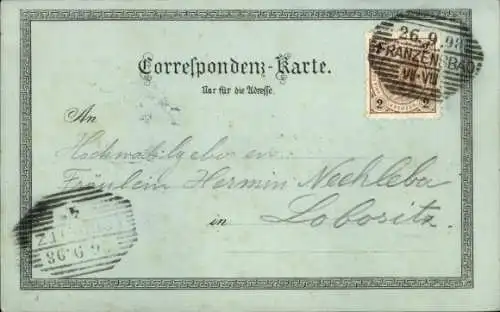 26.9.98
FRANZENSBAD
VII-VIII
2 2
Correspondenz-Karte.
Nur für die Adresse.
An
Hochwohlgeboren
Fräulein Hermin Nechleba
in Lobositz